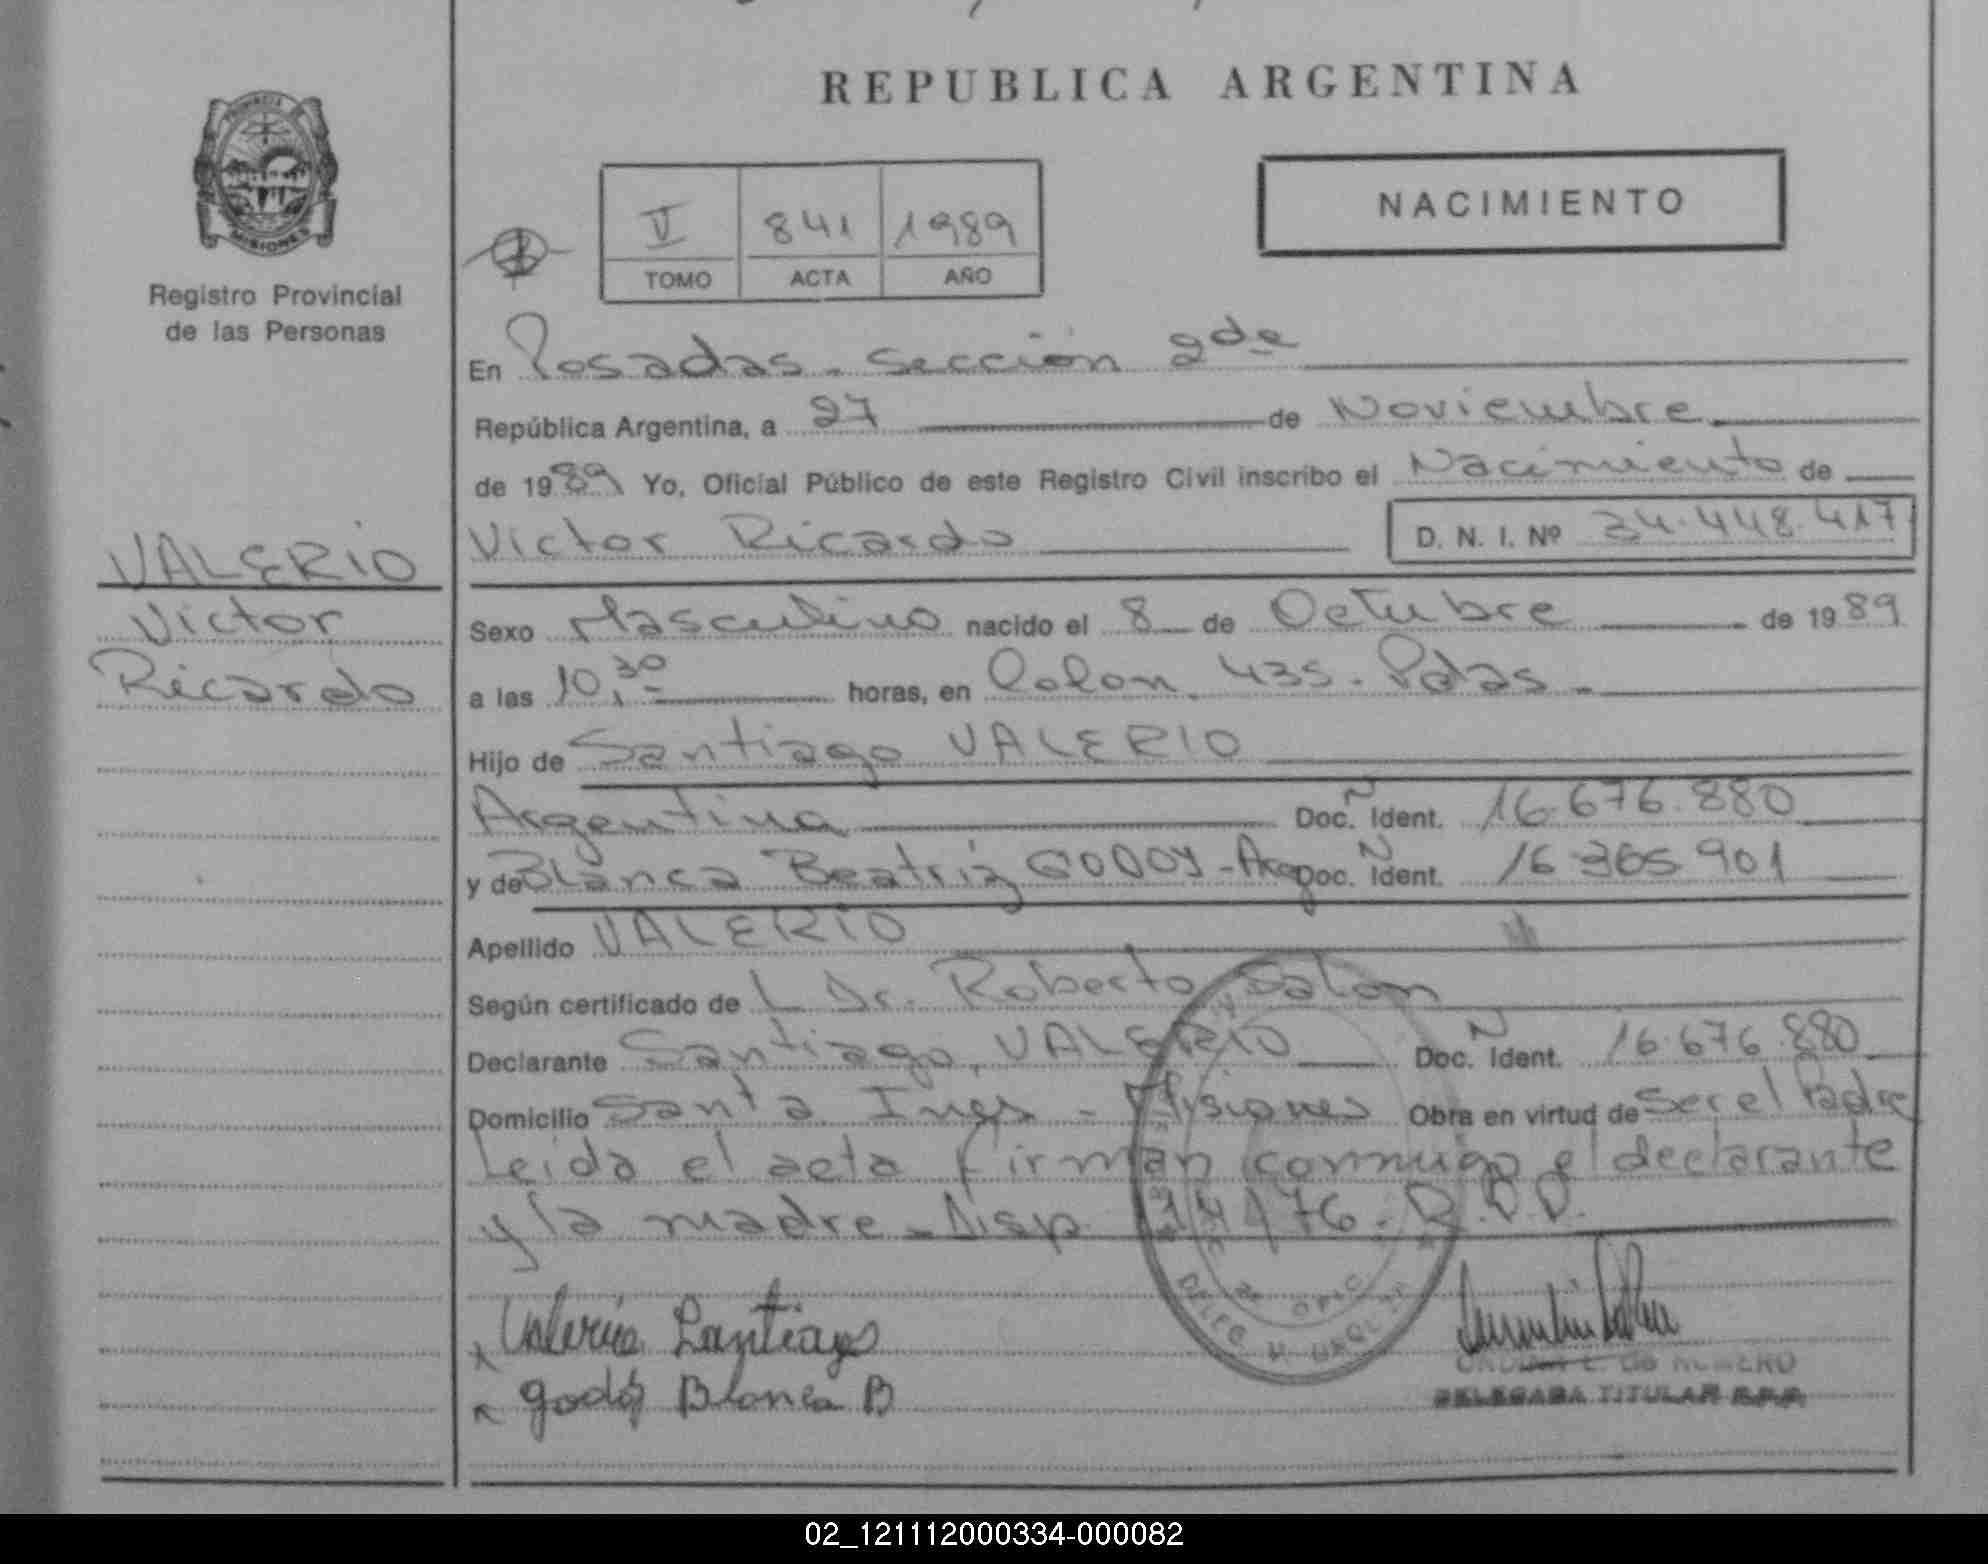 REPUBLICA ARGENTINA
PROVINCIA
MISIONES
Registro Provincial
de las Personas
V 841 1989
TOMO ACTA AÑO
NACIMIENTO
En Posadas - Sección 2da
República Argentina, a 27 de Noviembre
de 1989 Yo, Oficial Público de este Registro Civil inscribo el Nacimiento de
Victor Ricardo D. N. I. Nº 34.448.417
VALERIO
Victor
Ricardo
Sexo Masculino nacido el 8 de Octubre de 1989
a las 10,30 horas, en Colon 435 - Pdas -
Hijo de Santiago VALERIO
Argentina Doc. Ident. 16.676.880
y de Blanca Beatriz GODOY - Arg Doc. Ident. 16 365 901
Apellido VALERIO
Según certificado de L Dr. Roberto
Declarante Santiago, VALERIO Doc. Ident. 16.676.880
Domicilio Santa Ines - Misiones Obra en virtud de Ser el Padre
Leida el acta firman conmigo el declarante
y la madre - Disp. 76. D.D.D.
Valerio Santiago
Godoy Blanca B
DELEGADA TITULAR R.P.P.
02_121112000334-000082